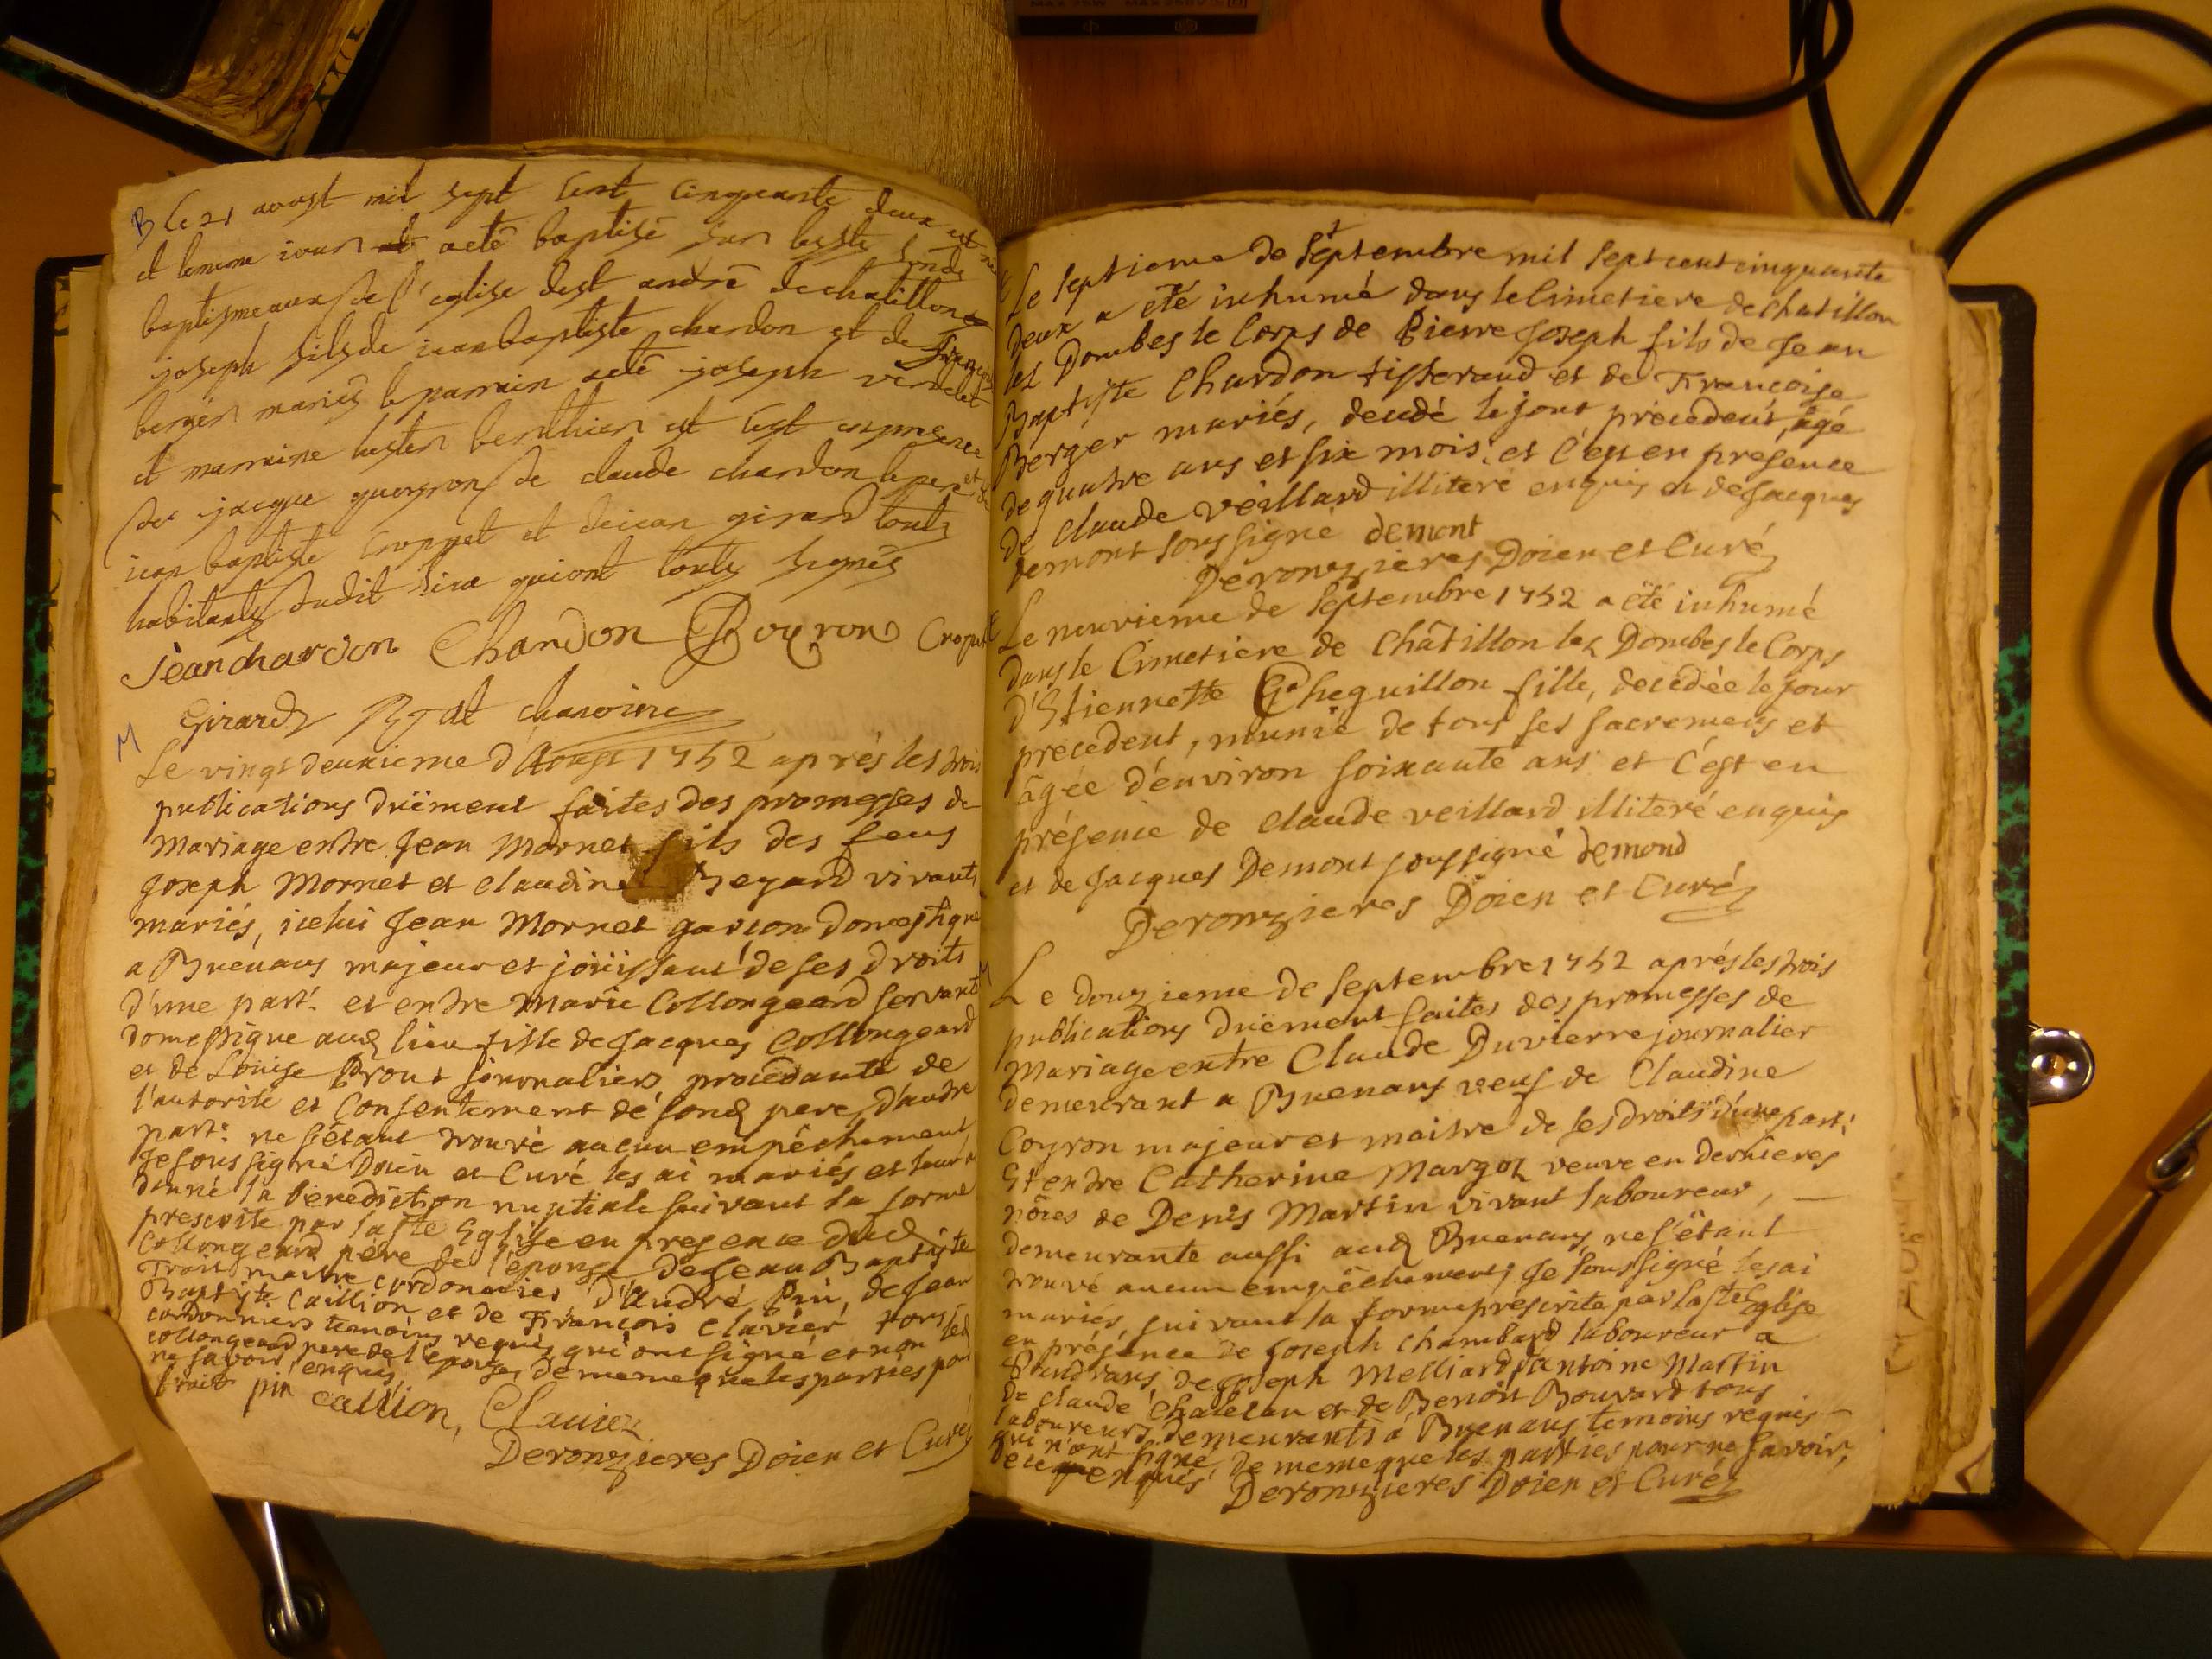 B Le 21 avost mil sept cent cinquante deux est né
et le meme iour a eté baptisé sur lesste fonds
baptismeaux de l'eglise de st andré de chatillon
joseph fils de iean baptiste chardon et de Françoise
berger mariés le parrain a eté joseph verdelet
et marraine berthier et c'est en presence
de jacque de claude chardon le pere et de
iean baptiste croppet et de iean girard touts
habitants dudit lieu qui ont touts signés
Jean chardon Chardon Croppet
Girard chanoine
M
Le vingt deuxieme d'Aoust 1752 après les trois
publications düement faites des promesses de
Mariage entre Jean Mornet fils des feus
Joseph Mornet et Claudine Regard vivants
mariés, icelui Jean Mornet garçon Domestique
a Buenans majeur et joüissant de ses droits
d'une part. et entre Marie Collongeard servante
Domestique aud lieu fille de Jacques Collongeard
et de Loüise Prout journaliers procédante de
l'autorité et Consentement de sond pere, d'autre
part. ne s'étant trouvé aucun empêchement
Je soussigné Doien et Curé les ai mariés et leur a
donné la bénédiction nuptiale suivant la forme
prescrite par la ste Eglise en presence dud
Collongeard père de l'épouse, de Jean Baptiste
maitre cordonnier d'André Pin, de Jean
Baptiste Caillion et de François Clavier, tous
cordonniers temoins requis qui ont signé et non led
collongeard pere de l'épouse, de meme que les parties pour
ne savoir, enquis
pin caillion, Clauier
Deronzieres Doien et Curé
Le septieme de Septembre mil sept cent cinquante
deux a été inhumé dans le Cimetiere de chatillon
les Dombes le Corps de Pierre Joseph fils de Jean
Baptiste Chardon tisserand et de Françoise
Berger mariés, decedé le jour précedent, âgé
de quatre ans et six mois, et c'est en presence
de Claude Veillard illiteré enquis et de Jacques
demont soussigné demont
Deronzieres Doien et Curé
Le neuvieme de Septembre 1752 a été inhumé
dans le Cimetiere de Châtillon les Dombes le Corps
d'Etiennette Gheguillon fille, decédée le jour
précedent, munie de tous ses sacremens et
âgée d'environ soixante ans et c'est en
présence de Claude veillard illiteré enquis
et de Jacques Demont soussigné demond
Deronzieres Doien et Curé
M
Le douzieme de Septembre 1752 après les trois
publications düement faites des promesses de
Mariage entre Claude Duvierre journalier
demeurant a Buenans veuf de Claudine
Coyron majeur et maitre de ses droits d'une part;
Et entre Catherine Margoz veuve en dernieres
nôces de Denis Martin vivant laboureur,
demeurante aussi aud Buenans ne s'étant
trouvé aucun empêchement Je soussigné les ai
mariés suivant la forme préscrite par la ste Eglise
en présence de Joseph Chambard laboureur a
de Joseph Melliard d'antoine Martin
de Claude Chatelan et de Benoit Bouvard tous
laboureurs demeurants á Buenans temoins requis
qui n'ont signé, de meme que les parties pour ne savoir,
de ce enquis
Deronzieres Doien et Curé